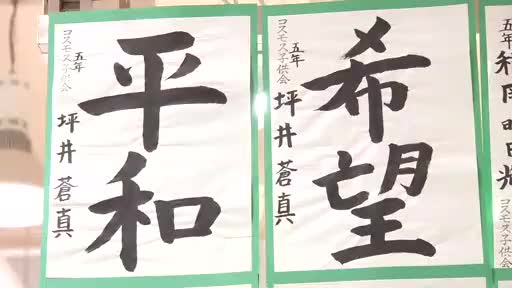 五年
コスモス子供会
希望
坪井蒼真
平和
五年
コスモス子供会
坪井蒼真
五年
コスモス子供会